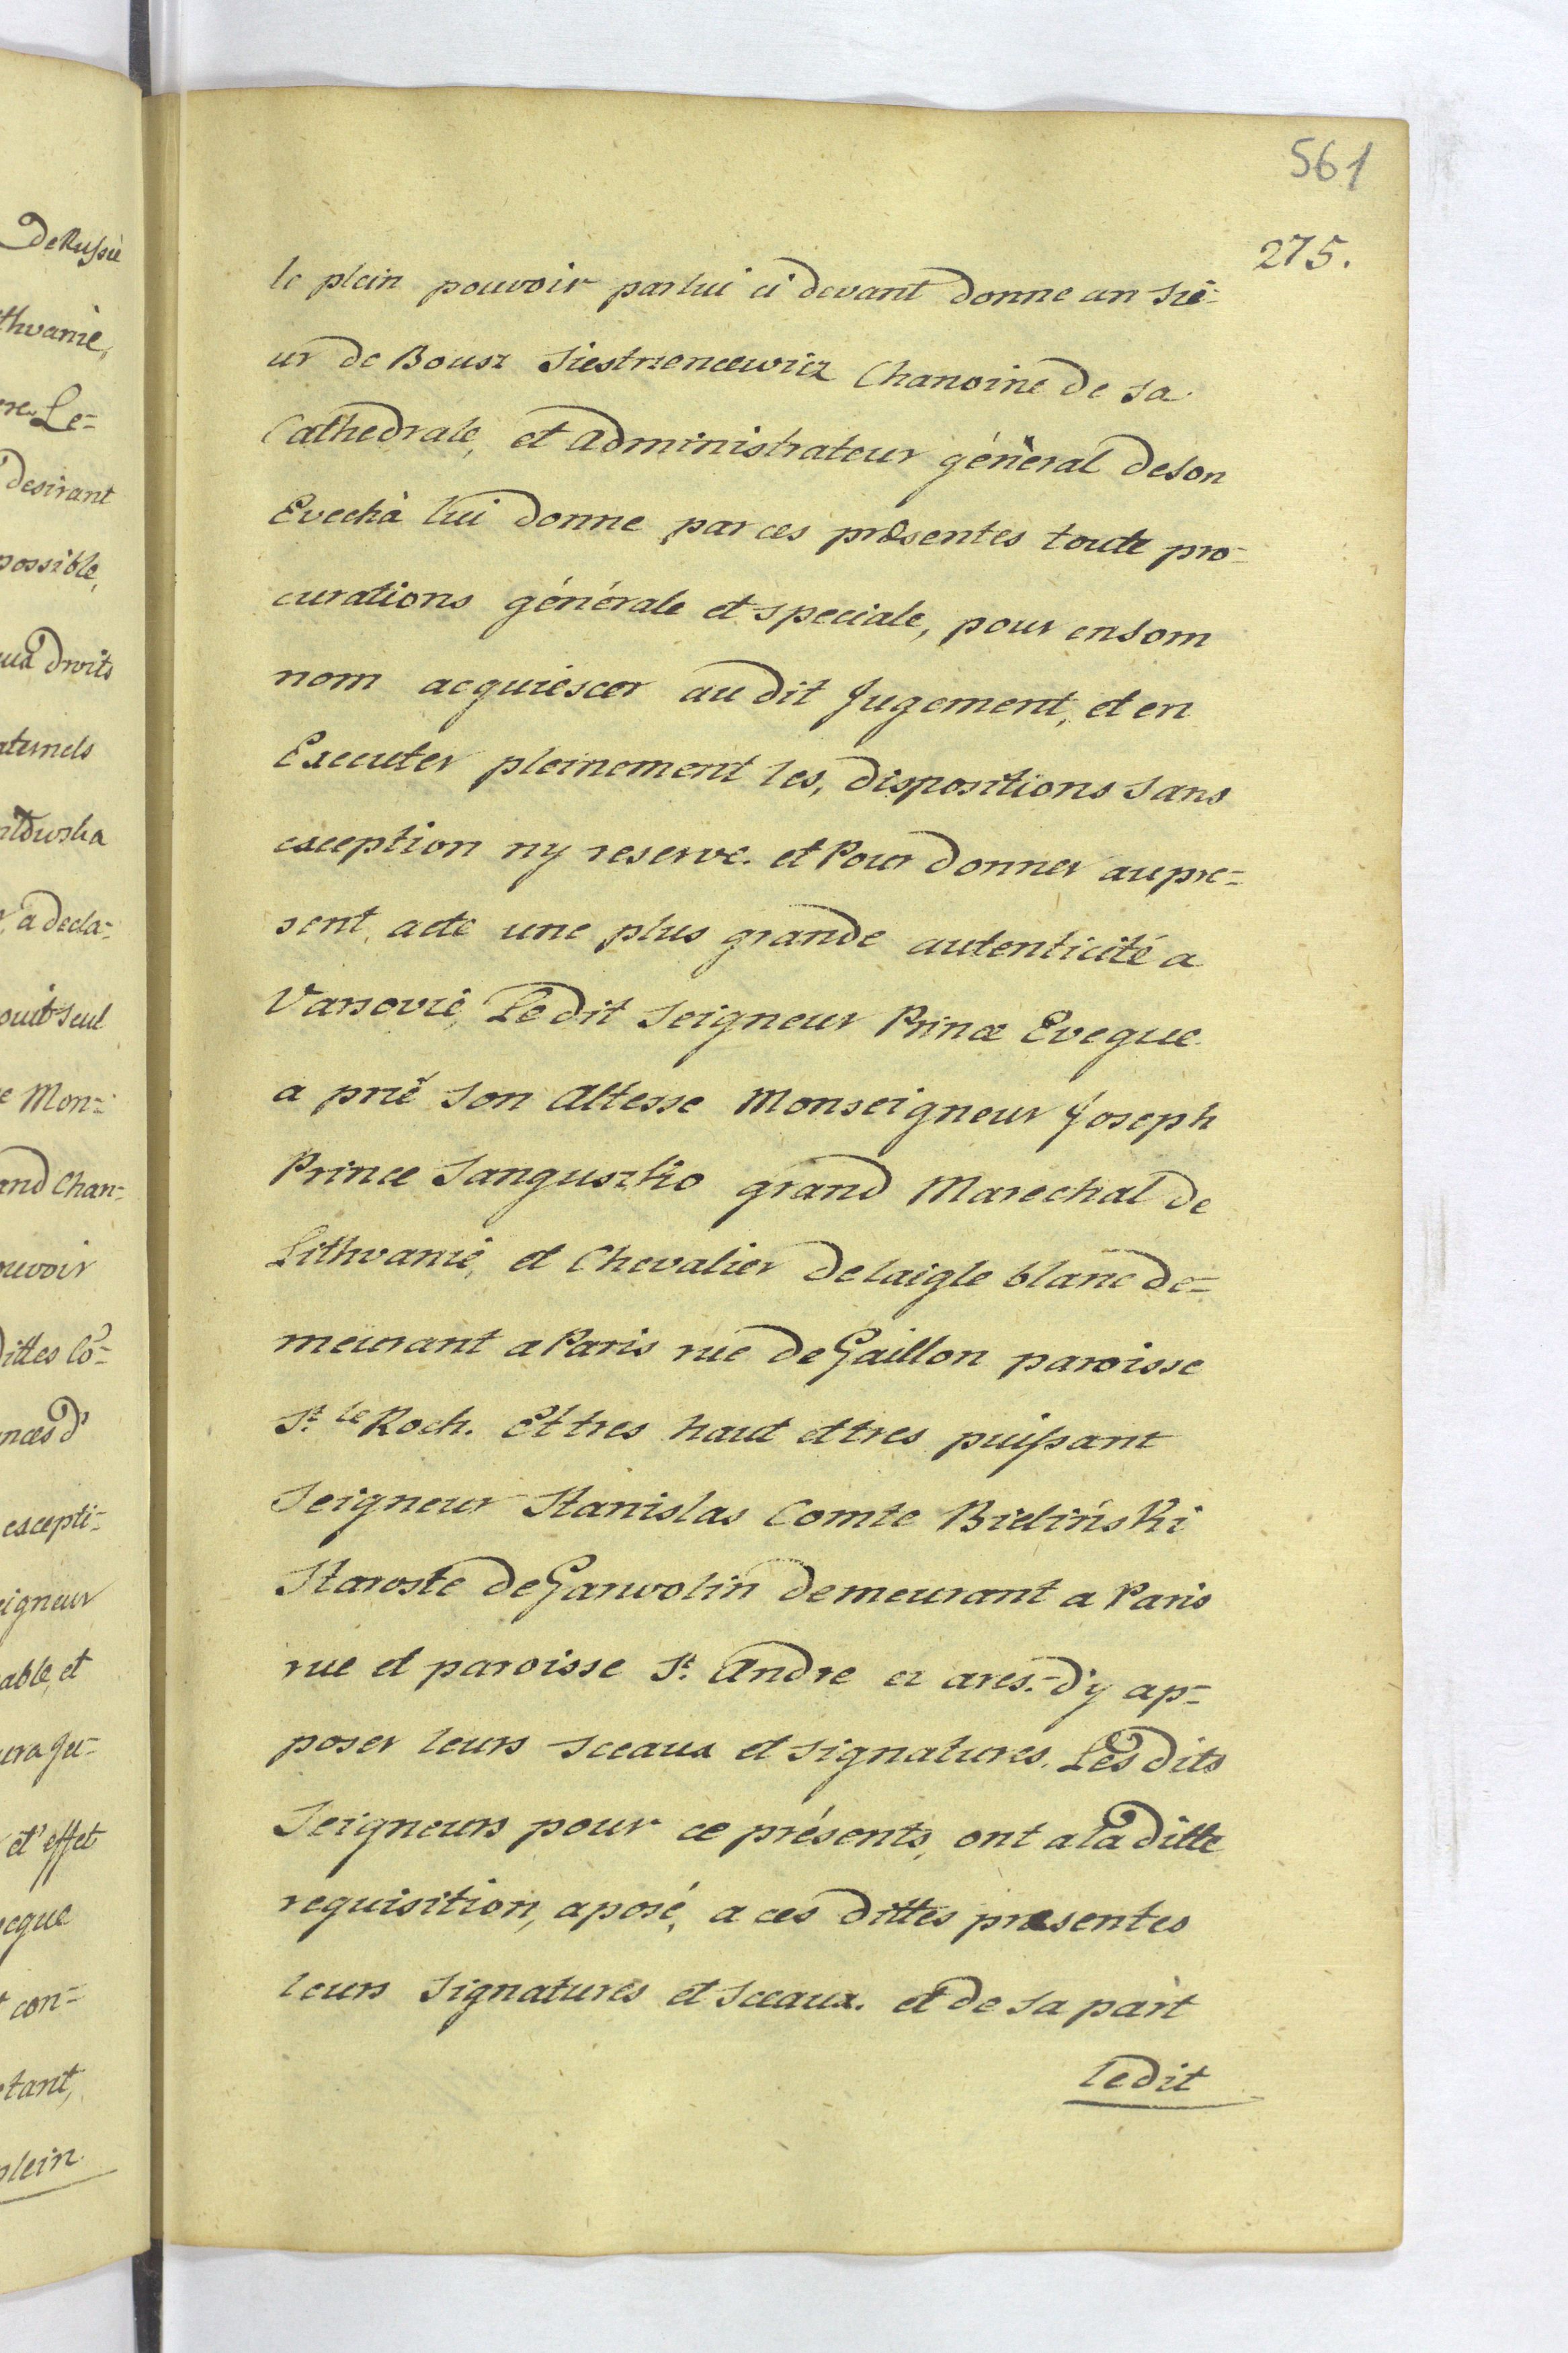 561
275.
le plein pouvoir par lui ci devant donne an sie-
ur de Bousz Siestrzencewicz Chanoine de sa
Cathedrale, et administrateur général de son
Evechà lui donne par ces presentes toute pro-
curations générale et speciale, pour en som
nom acquiescer au dit Jugement, et en
Executer pleinement les, dispositions sans
exception ny reserve. et Pour donner au pre=
sent, acte une plus grande autenticité a
Varsovie, Le dit Seigneur Prince Eveque
a prié son Altesse Monseigneur Joseph
Prince Sanguszko grand Marechal de
Lithvanie, et Chevalier de laigle blanc de=
meurant a Paris rue de Gaillon paroisse
St. le Roch. Et tres haut et tres puissant
Seigneur Stanislas Comte Bieliński
Staroste de Garwolin demeurant a Paris
rue et paroisse St. Andre ez ares.- d'y ap=
poser leurs sceaux et signatures. Les dits
Seigneurs pour ce présents, ont a la ditte
requisition, aposé, a ces dittes presentes
leurs signatures et sceaux. et de sa part
ledit
De Russie
thvanie,
Le=
desirant
possible,
droits
aternels
a decla=
seul
Mon=
and Chan=
ouvoir
dittes Co=
nces d'
excepti=
eigneur
able, et
et' effet
eque
con=
tant,
plein